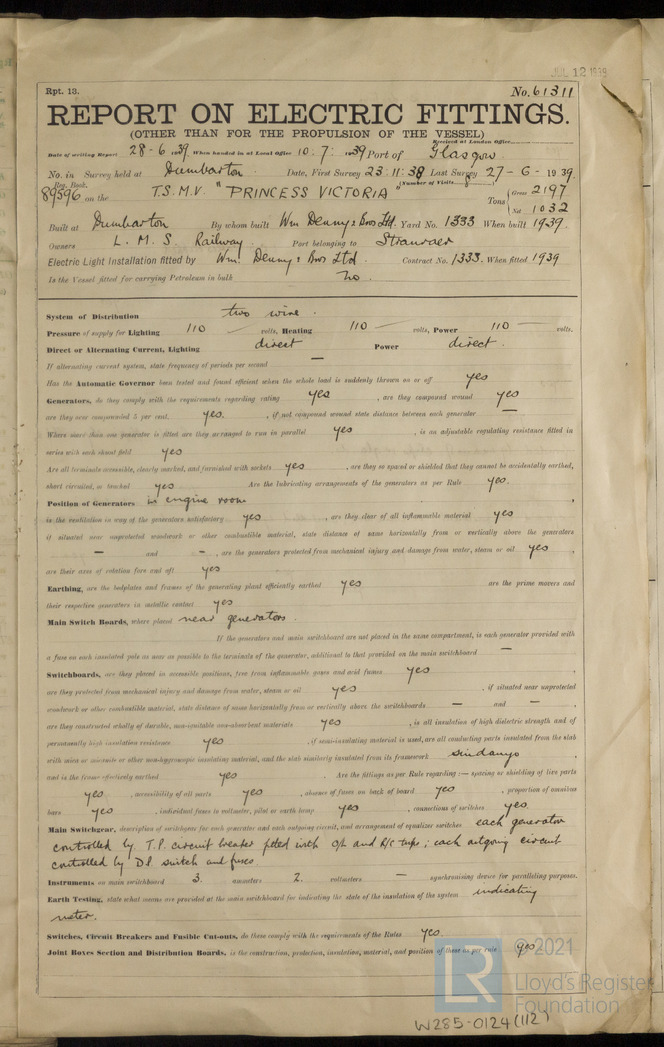 JUL 12 1939
Rpt. 13. No. 61311
REPORT ON ELECTRIC FITTINGS.
(OTHER THAN FOR THE PROPULSION OF THE VESSEL)
Received at London Office
Date of writing Report 28-6-1939 When handed in at Local Office 10.7.1939 Port of Glasgow
No. in Survey held at Dumbarton Date, First Survey 23.11.38 Last Survey 27-6-1939
Reg. Book. (Number of Visits 8)
89596 on the T.S.M.V. "PRINCESS VICTORIA" Tons { Gross 2197
Net 1032
Built at Dumbarton By whom built Wm Denny & Bros Ltd. Yard No. 1333 When built 1939.
Owners L. M. S. Railway. Port belonging to Stranraer
Electric Light Installation fitted by Wm. Denny & Bros Ltd. Contract No. 1333. When fitted 1939
Is the Vessel fitted for carrying Petroleum in bulk No.
System of Distribution two wire.
Pressure of supply for Lighting 110 volts, Heating 110 volts, Power 110 volts.
Direct or Alternating Current, Lighting direct Power direct.
If alternating current system, state frequency of periods per second —
Has the Automatic Governor been tested and found efficient when the whole load is suddenly thrown on or off yes
Generators, do they comply with the requirements regarding rating yes , are they compound wound yes
are they over compounded 5 per cent. yes. , if not compound wound state distance between each generator —
Where more than one generator is fitted are they arranged to run in parallel yes , is an adjustable regulating resistance fitted in
series with each shunt field yes
Are all terminals accessible, clearly marked, and furnished with sockets yes , are they so spaced or shielded that they cannot be accidentally earthed,
short circuited, or touched yes Are the lubricating arrangements of the generators as per Rule yes.
Position of Generators in engine room
is the ventilation in way of the generators satisfactory yes , are they clear of all inflammable material yes
if situated near unprotected woodwork or other combustible material, state distance of same horizontally from or vertically above the generators
— and — , are the generators protected from mechanical injury and damage from water, steam or oil yes ,
are their axes of rotation fore and aft yes
Earthing, are the bedplates and frames of the generating plant efficiently earthed yes are the prime movers and
their respective generators in metallic contact yes
Main Switch Boards, where placed near generators.
If the generators and main switchboard are not placed in the same compartment, is each generator provided with
a fuse on each insulated pole as near as possible to the terminals of the generator, additional to that provided on the main switchboard —
Switchboards, are they placed in accessible positions, free from inflammable gases and acid fumes yes ,
are they protected from mechanical injury and damage from water, steam or oil yes , if situated near unprotected
woodwork or other combustible material, state distance of same horizontally from or vertically above the switchboards — and — ,
are they constructed wholly of durable, non-ignitable non-absorbent materials yes , is all insulation of high dielectric strength and of
permanently high insulation resistance yes , if semi-insulating material is used, are all conducting parts insulated from the slab
with mica or micanite or other non-hygroscopic insulating material, and the slab similarly insulated from its framework sindanyo ,
and is the frame effectively earthed yes . Are the fittings as per Rule regarding :— spacing or shielding of live parts
yes , accessibility of all parts yes , absence of fuses on back of board yes , proportion of omnibus
bars yes , individual fuses to voltmeter, pilot or earth lamp yes , connections of switches yes
Main Switchgear, description of switchgear for each generator and each outgoing circuit, and arrangement of equalizer switches each generator
controlled by T.P. circuit breaker fitted with O/L and R/C trips; each outgoing circuit
controlled by D.P. switch and fuses.
Instruments on main switchboard 3. ammeters 2. voltmeters — synchronising device for paralleling purposes.
Earth Testing, state what means are provided at the main switchboard for indicating the state of the insulation of the system indicating
meter.
Switches, Circuit Breakers and Fusible Cut-outs, do these comply with the requirements of the Rules yes.
Joint Boxes Section and Distribution Boards, is the construction, protection, insulation, material, and position of these as per rule yes
LR © 2021
Lloyd's Register
Foundation
W285-0124(1/2)